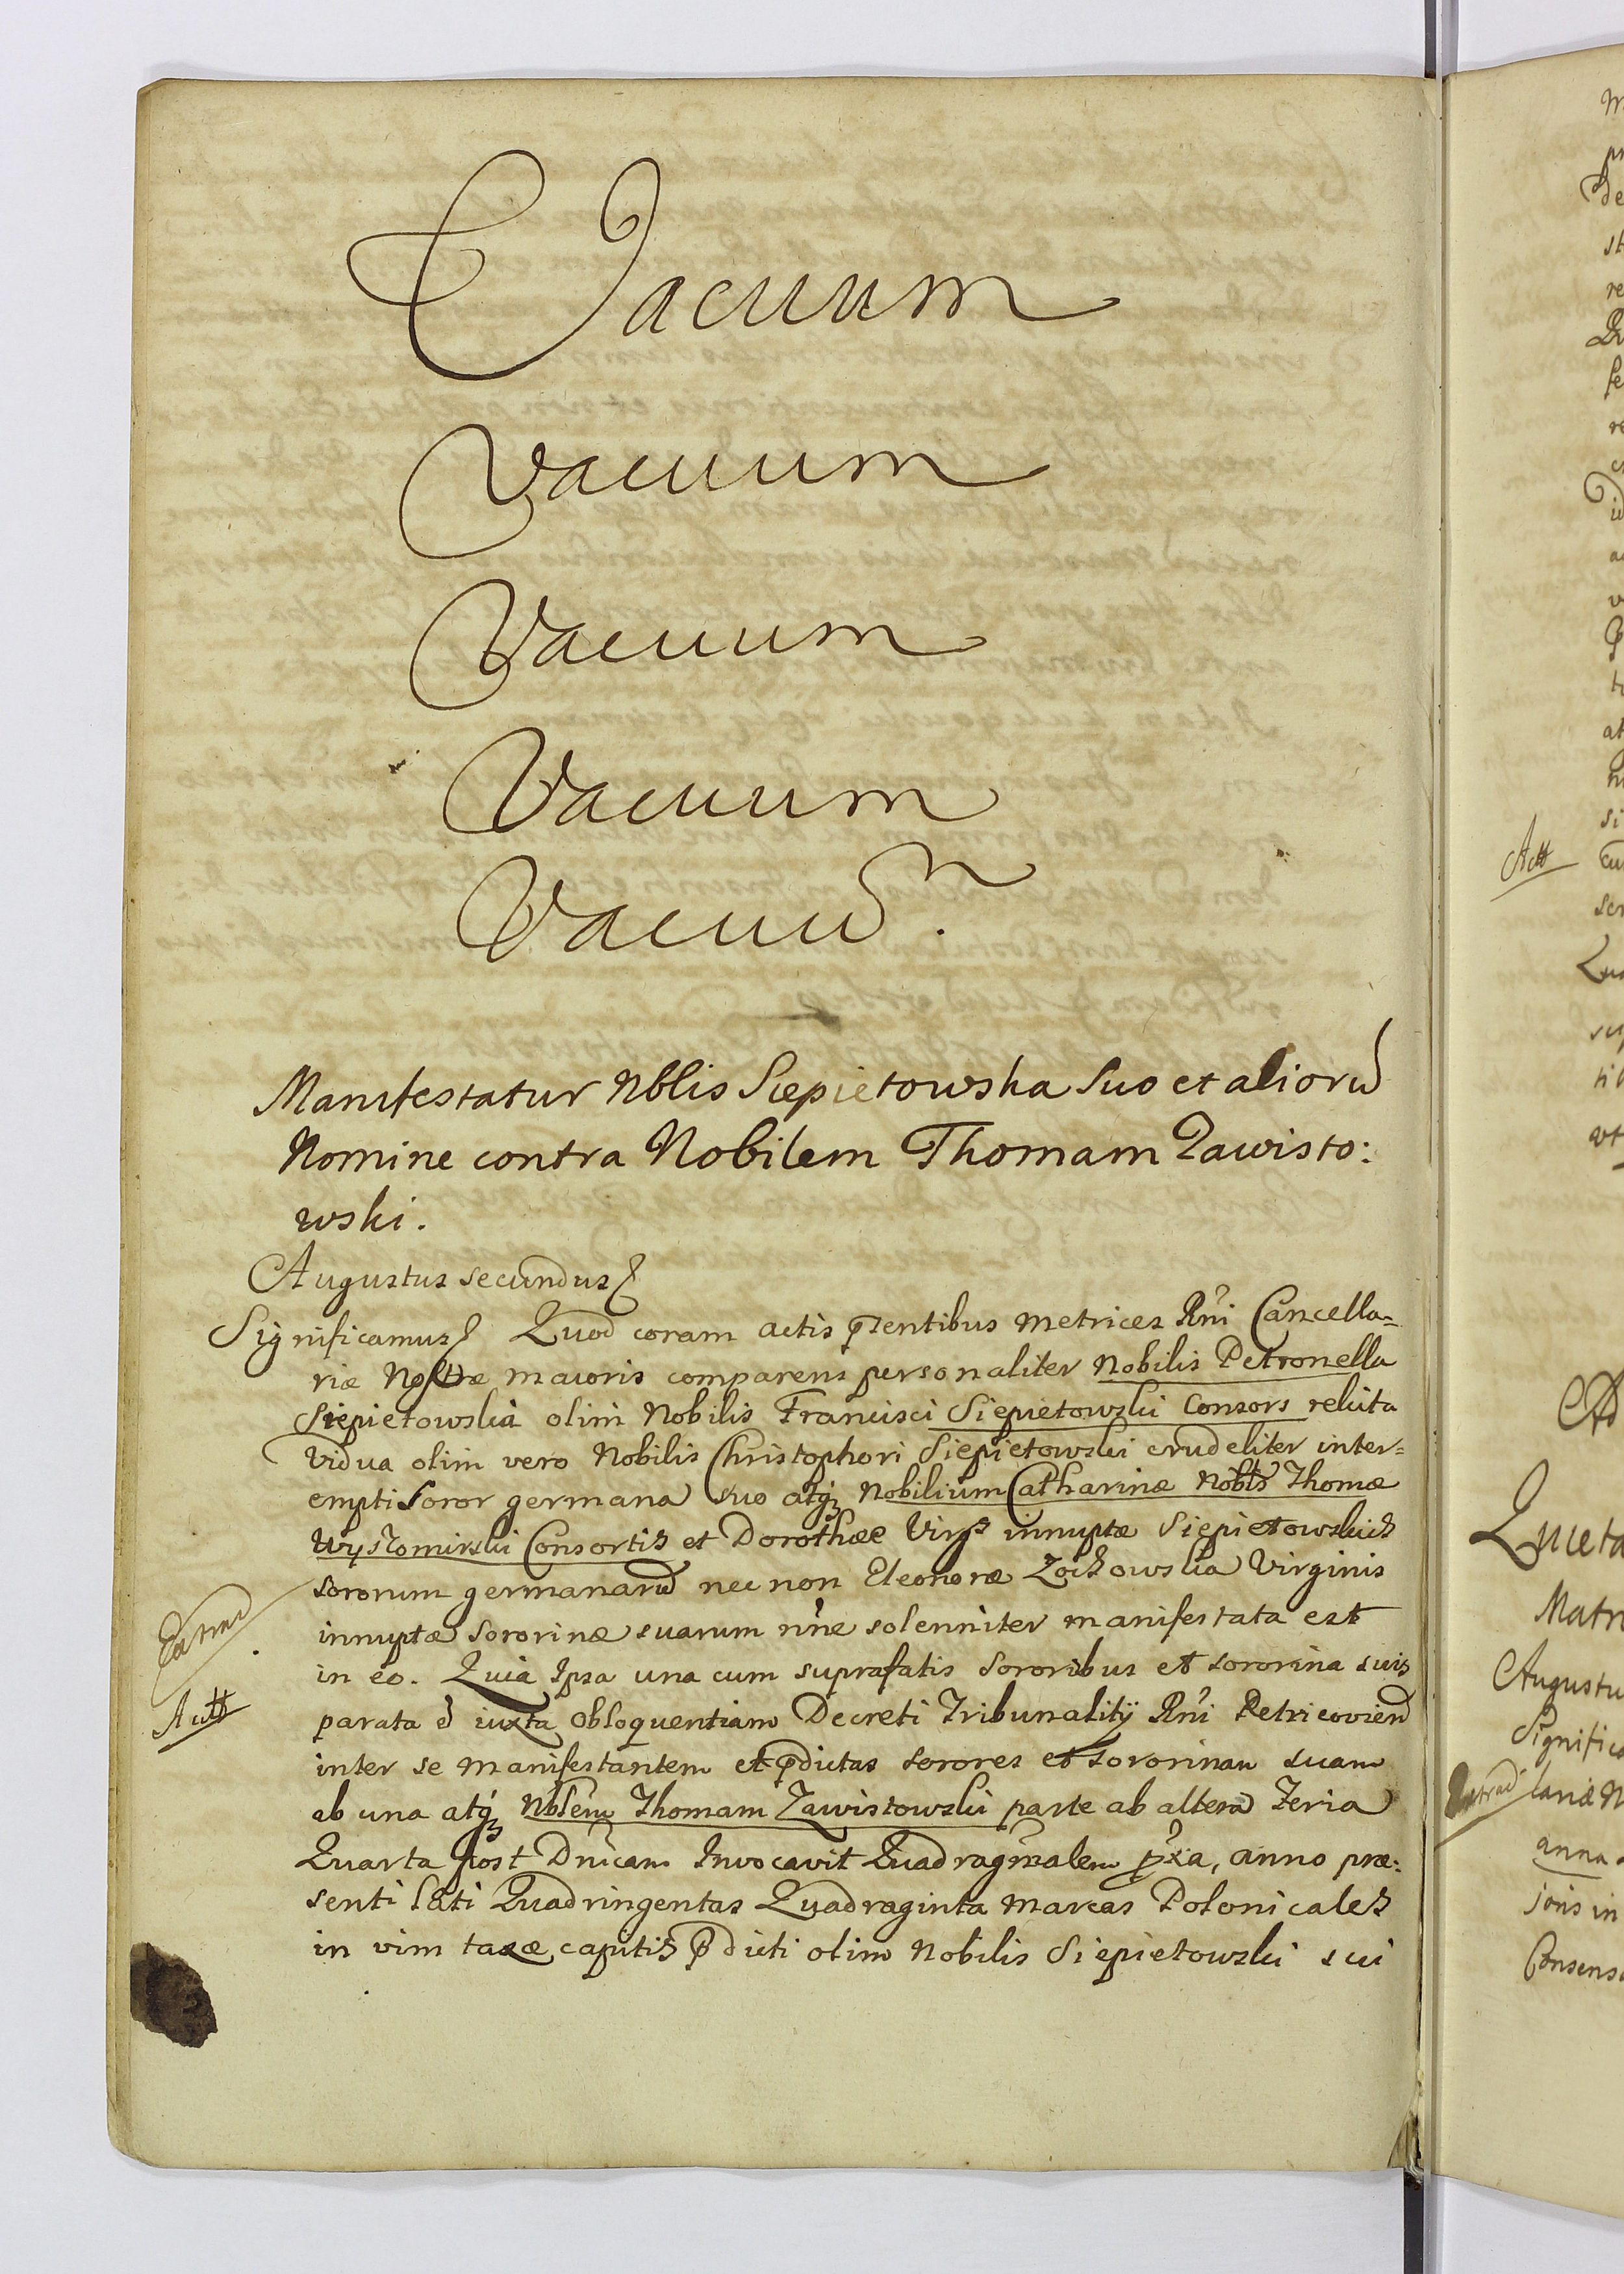 Vacuum
Vacuum
Vacuum
Vacuum
Vacuum.
Manifestatur Nblis Siepietowska suo et aliorum
Nomine contra Nobilem Thomam Zawisto:
wski.
Augustus secundus
Significamus Quod coram actis pntibus metrices Rni Cancella=
riæ Nostræ maioris comparens personaliter Nobilis Petronella
Siepietowska olim Nobilis Francisci Siepietowski Consors relicta
Vidua olim vero Nobilis Christophori Siepietowski crudeliter inter=
empti soror germana suo atq Nobilium Catharinæ Noblis Thomæ
Wystomirski Consortis et Dorothææ Virgs innuptæ Siepietowskich
sororum germanarum nec non Eleonoræ Zochowska Virginis
innuptæ sororinæ suarum nne solenniter manifestata est
in eo. Quia Ipsa una cum suprafatis sororibus et sororina suis
parata e iuxta obloquentiam Decreti Tribunality Rni Petricovien
inter se manifestantem et pdictas sorores et sororinam suam
ab una atq Nblem Thomam Zawistowski parte ab altera Feria
Quarta post Dnicam Invocavit Quadragmalem pxa, anno præ:
senti lati Quadringentas Quadraginta marcas Polonicales
in vim taxæ capitis pdicti olim Nobilis Siepietowski sui
Actt
Actt
Quieta
Matr
Augustu
Signific
lariæ N
anna
joris in
Consens